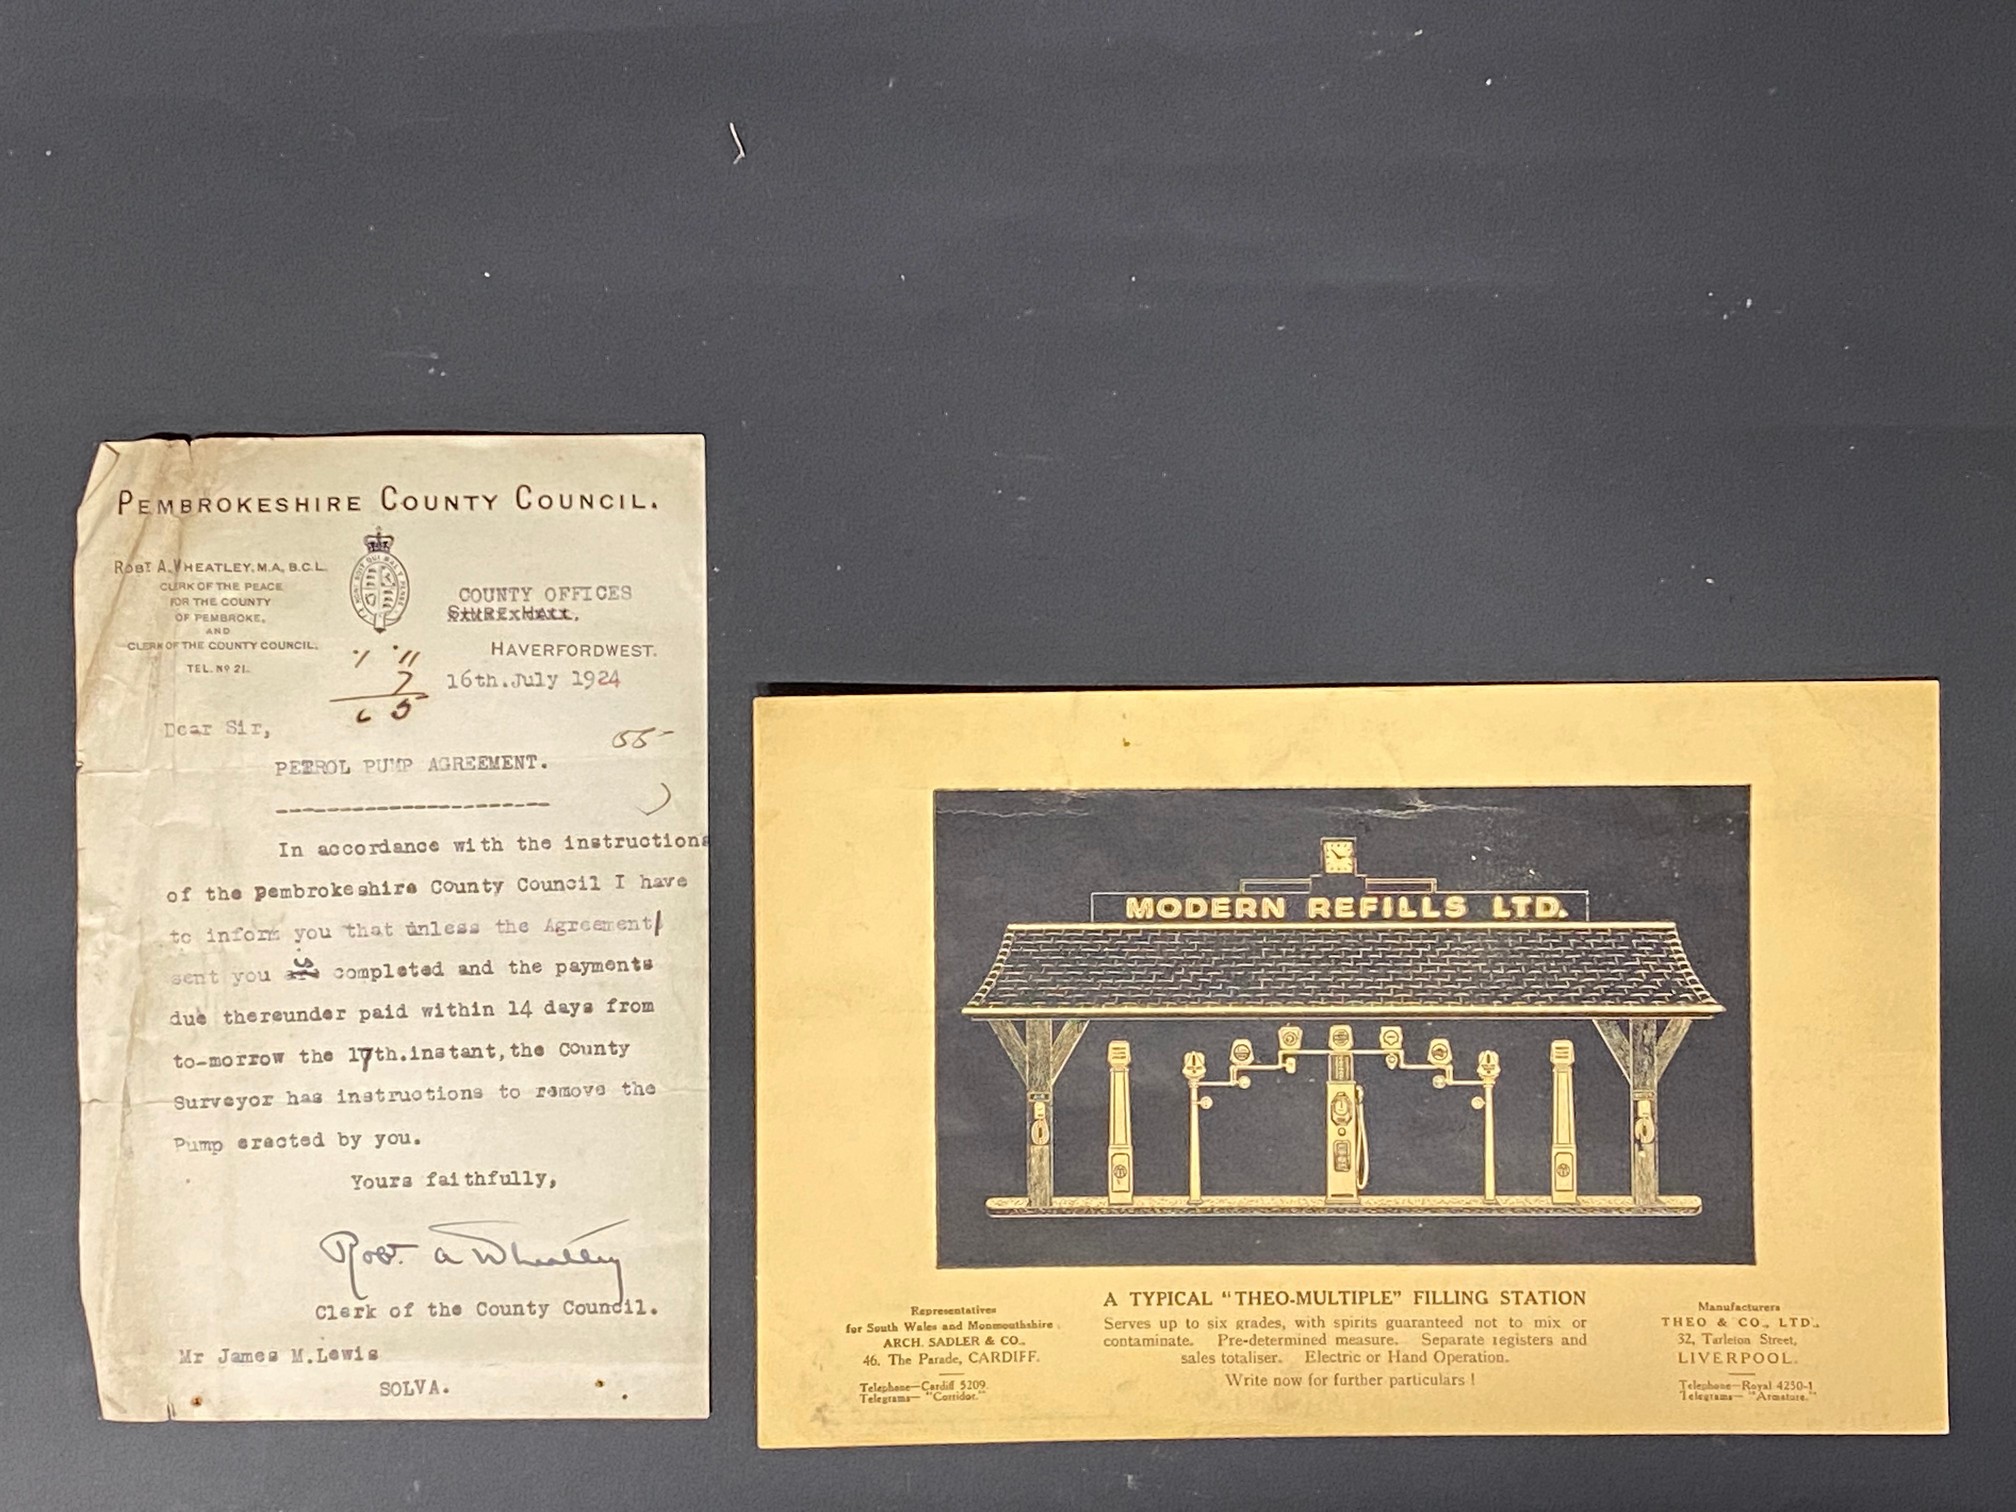 PEMBROKESHIRE COUNTY COUNCIL.
ROBT A. WHEATLEY, M.A., B.C.L.
CLERK OF THE PEACE
FOR THE COUNTY
OF PEMBROKE,
AND
CLERK OF THE COUNTY COUNCIL.
TEL. No 21.
COUNTY OFFICES
HAVERFORDWEST.
16th.July 1924
11
7
Dear Sir,
55-
PETROL PUMP AGREEMENT.
In accordance with the instructions
of the Pembrokeshire County Council I have
to inform you that unless the Agreement
sent you is completed and the payments
due thereunder paid within 14 days from
to-morrow the 17th.instant, the County
Surveyor has instructions to remove the
Pump erected by you.
Yours faithfully,
Robt. A Wheatley
Clerk of the County Council.
Mr James M.Lewis
SOLVA.
MODERN REFILLS LTD.
A TYPICAL "THEO-MULTIPLE" FILLING STATION
Serves up to six grades, with spirits guaranteed not to mix or
contaminate. Pre-determined measure. Separate registers and
sales totaliser. Electric or Hand Operation.
Write now for further particulars !
Representatives
for South Wales and Monmouthshire
ARCH. SADLER & CO.,
46, The Parade, CARDIFF.
Telephone—Cardiff 5209.
Telegrams— "Corridor."
Manufacturers
THEO & CO., LTD.,
32, Tarleton Street,
LIVERPOOL.
Telephone—Royal 4250-1
Telegrams— "Armature."